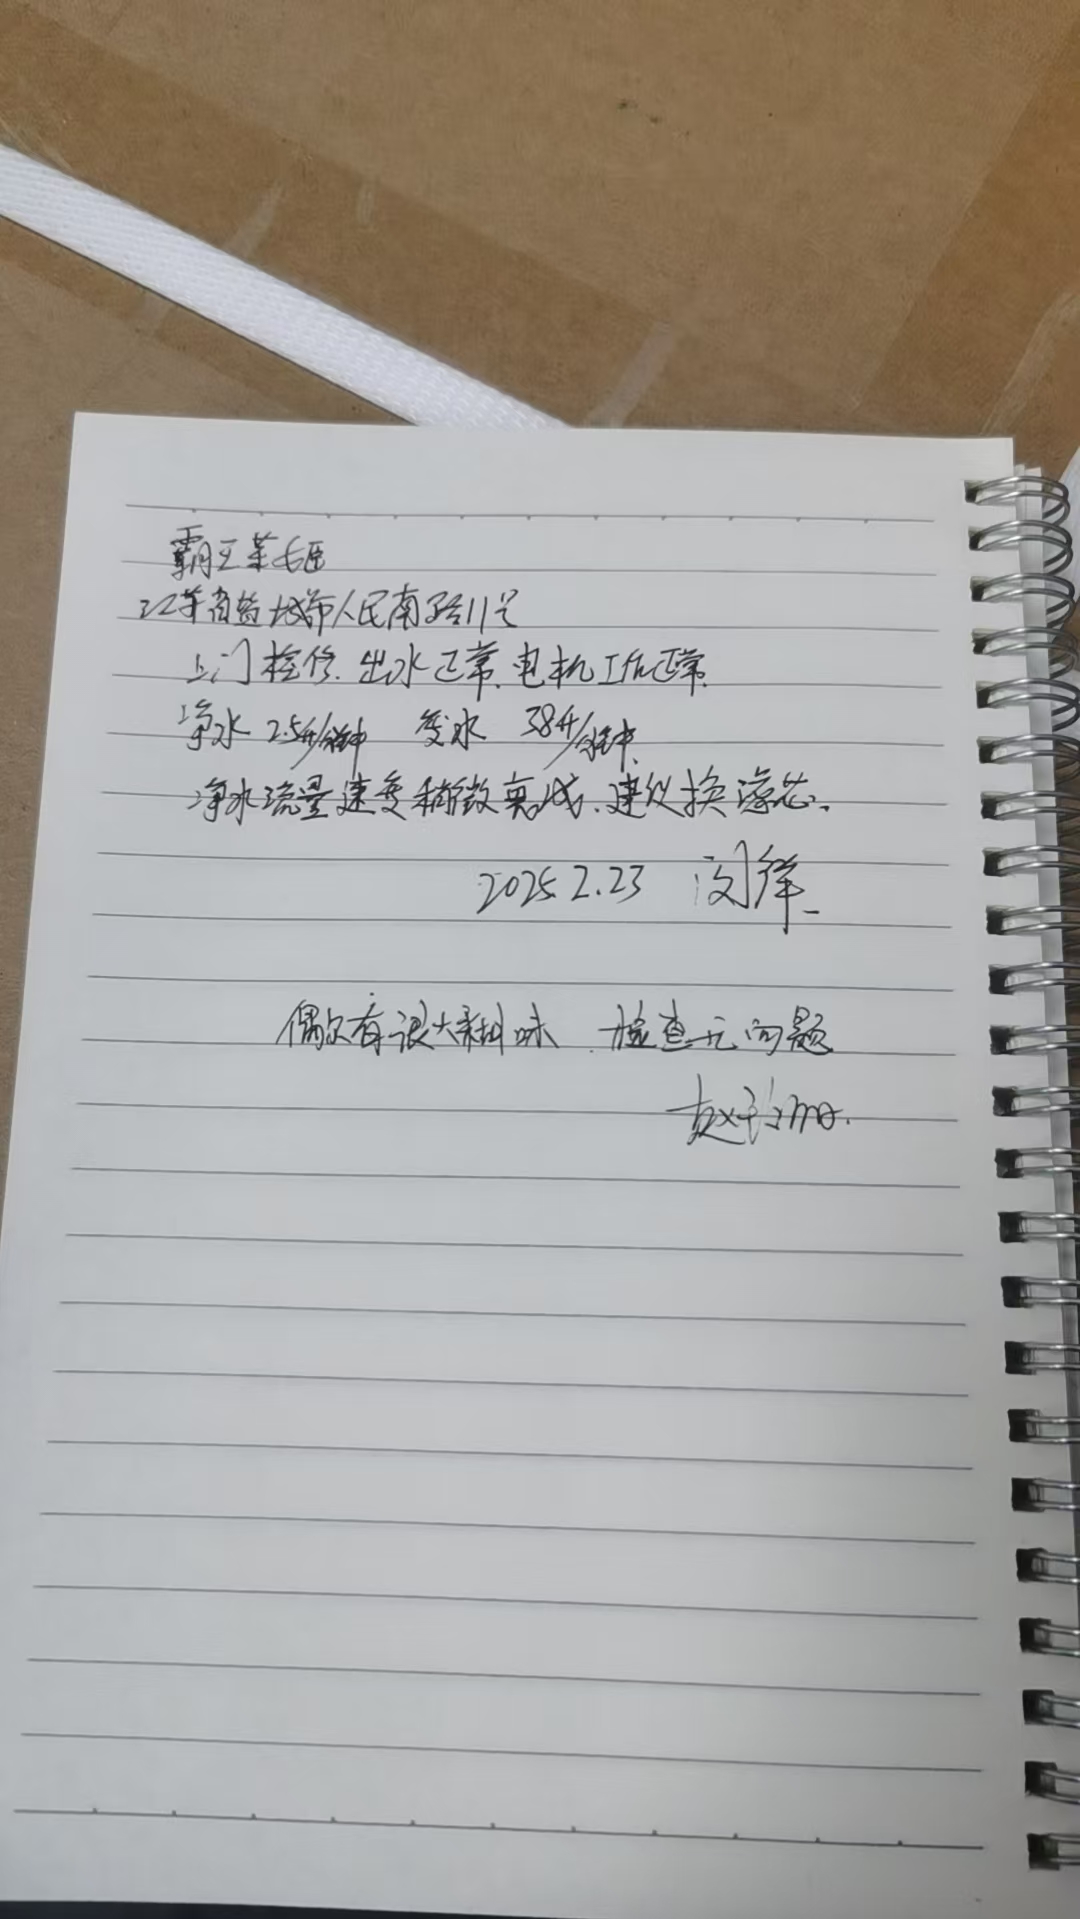 霸王茶姬
江苏省盐城市人民南路11号
上门检修.出水正常.电机工作正常.
净水 2.5升/分钟 废水 3.8升/分钟.
净水流量速度稍微衰减.建议换滤芯.
2025.2.23 闵祥
偶尔有很大异味 . 检查无问题
赵